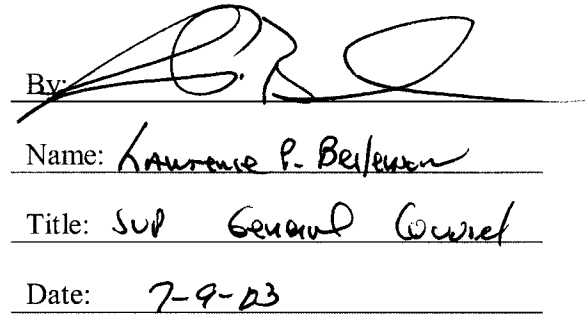 By:
Name: Lawrence P.
Title: SVP General Counsel
Date: 7-9-03